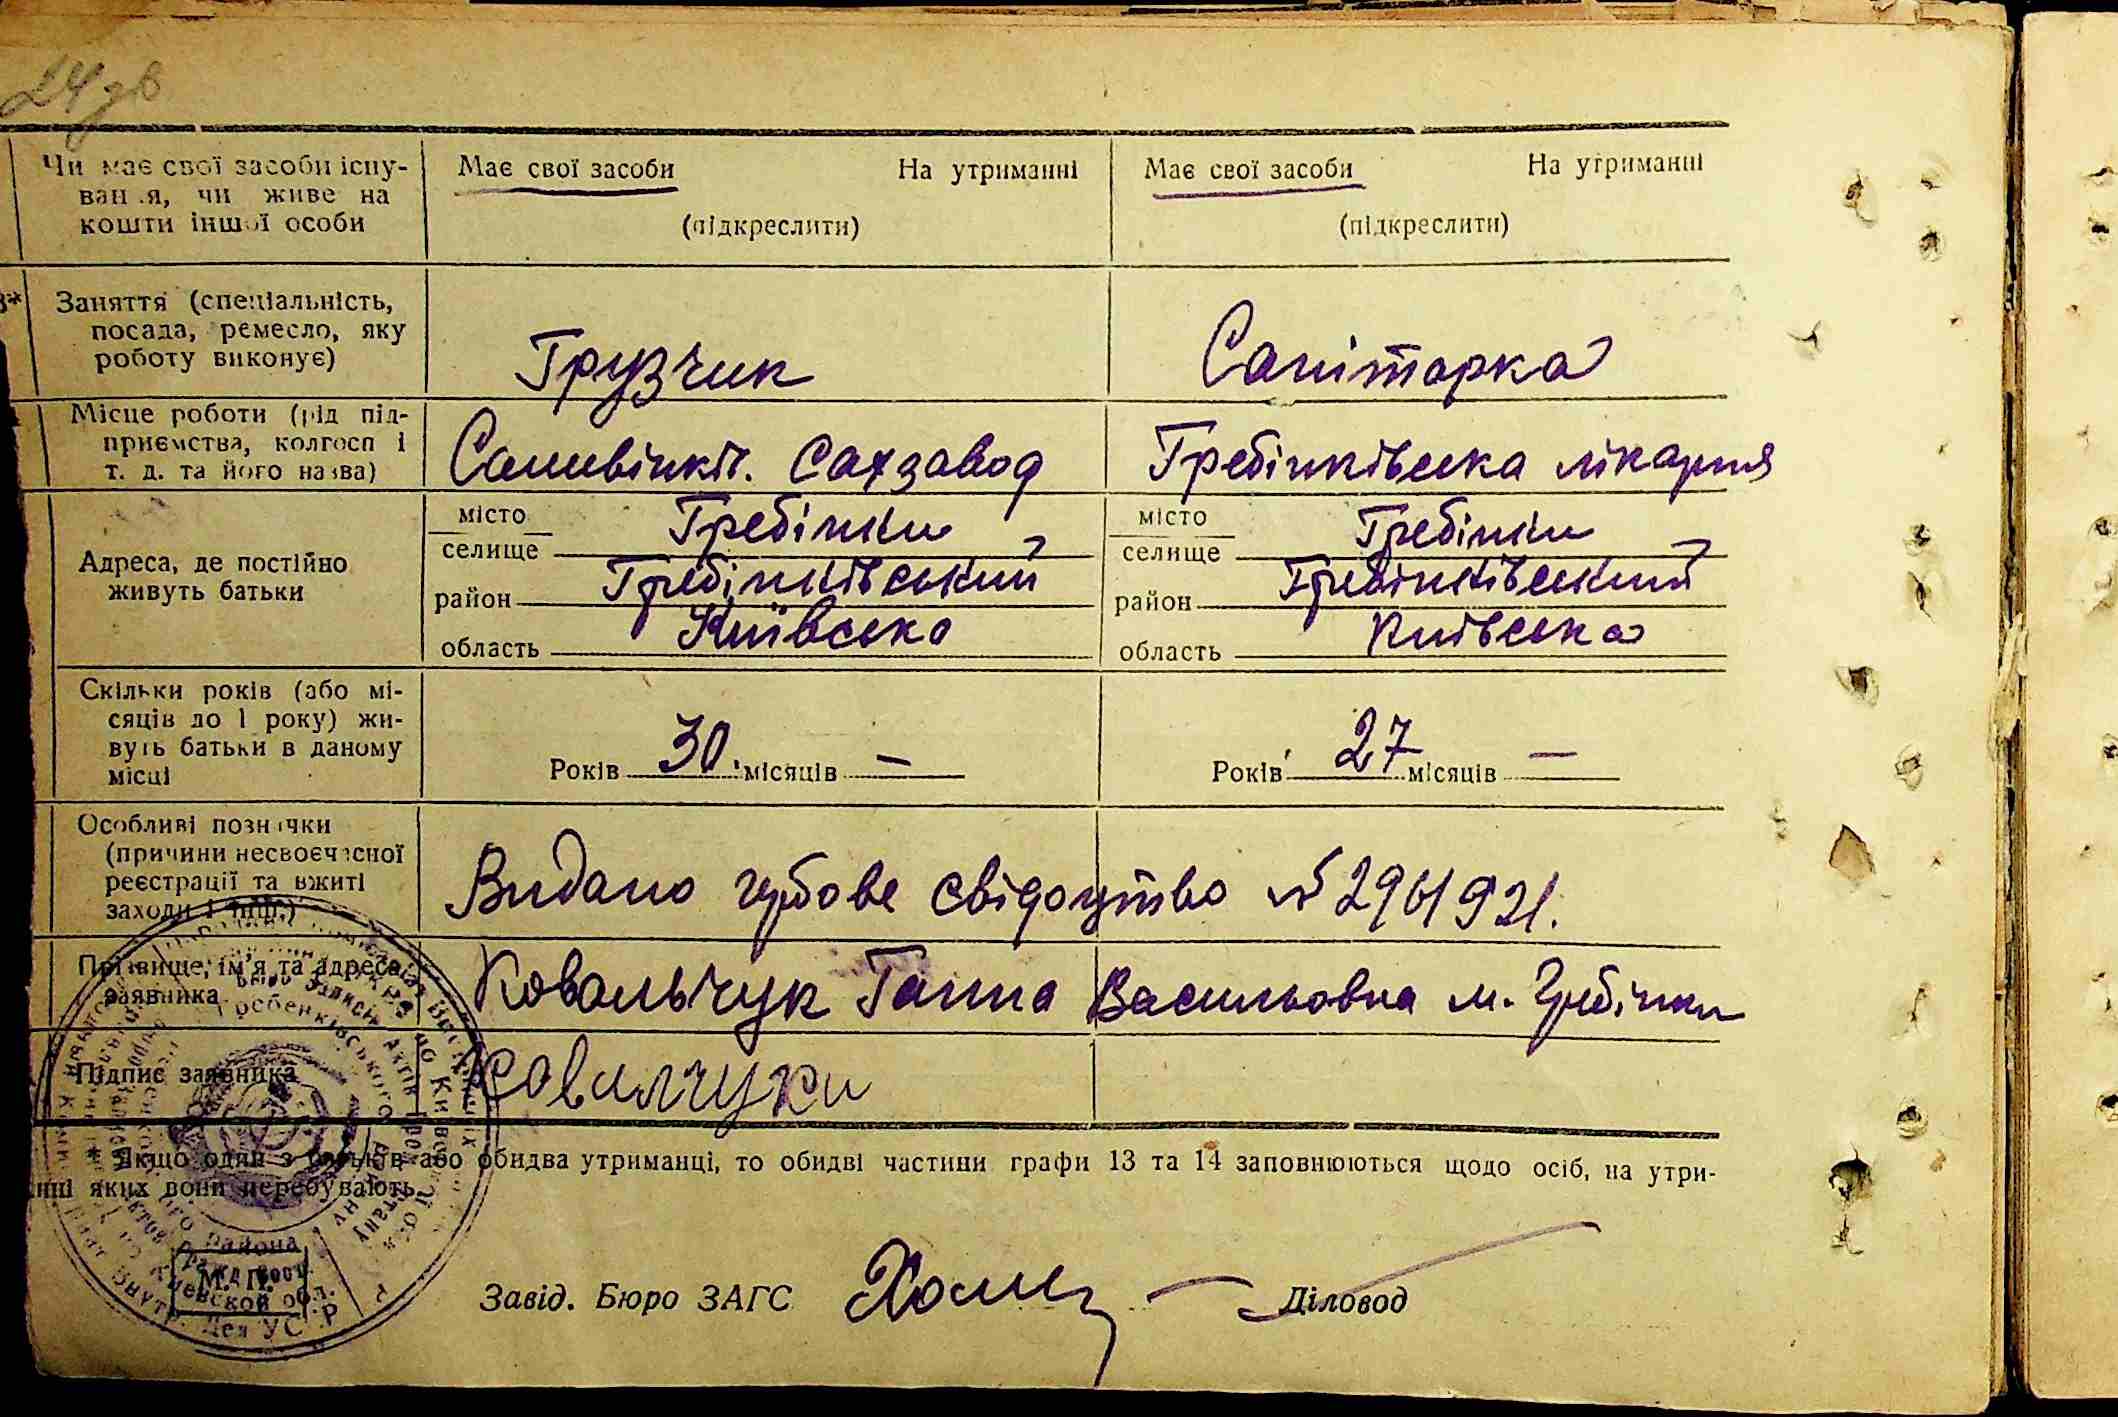 24 зв
Чи має свої засоби існу-
вання, чи живе на
кошти іншої особи
Має свої засоби На утриманні
(підкреслити)
Має свої засоби На утриманні
(підкреслити)
Заняття (спеціальність,
посада, ремесло, яку
роботу виконує)
Грузчик
Санітарка
Місце роботи (рід під-
приємства, колгосп і
т. д. та його назва)
Саливінків. Сахзавод
Гребінківська лікарня
Адреса, де постійно
живуть батьки
місто
селище Гребінки
район Гребінківський
область Київська
місто
селище Гребінки
район Гребінківський
область Київська
Скільки років (або мі-
сяців до 1 року) жи-
вуть батьки в даному
місці
Років 30. місяців —
Років 27 місяців —
Особливі позначки
(причини несвоєчасної
реєстрації та вжиті
заходи і інш.)
Видано гербове свідоцтво №
Прізвище, ім'я та адреса
заявника
Ковальчук Ганна Васильовна м. Гребінки
Підпис заявника
* Якщо один з батьків або обидва утриманці, то обидві частини графи 13 та 14 заповнюються щодо осіб, на утри-
нні яких вони перебувають.
М. П.
Завід. Бюро ЗАГС
Діловод